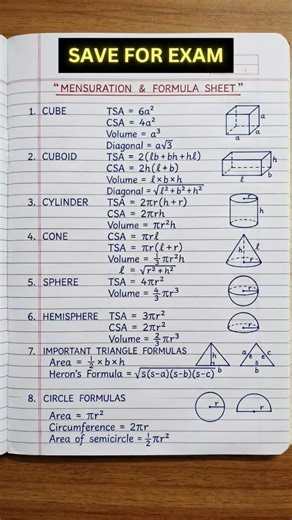 SAVE FOR EXAM
"MENSURATION & FORMULA SHEET"
1. CUBE TSA = 6a²
CSA = 4a²
Volume = a³
Diagonal = a√3
a
a
a
2. CUBOID TSA = 2(lb+bh+hl)
CSA = 2h(l+b)
Volume = l×b×h
Diagonal = √l²+b²+h²
h
l
b
3. CYLINDER TSA = 2πr(h+r)
CSA = 2πrh
Volume = πr²h
h
4. CONE CSA = πrl
TSA = πr(l+r)
Volume = 1/3 πr²h
l = √r²+h²
h
l
5. SPHERE TSA = 4πr²
Volume = 4/3 πr³
6. HEMISPHERE TSA = 3πr²
CSA = 2πr²
Volume = 2/3 πr³
r
7. IMPORTANT TRIANGLE FORMULAS
Area = 1/2 × b × h
Heron's Formula = √s(s-a)(s-b)(s-c)
h
b
a
c
s
b
8. CIRCLE FORMULAS
Area = πr²
Circumference = 2πr
Area of semicircle = 1/2 πr²
r
r